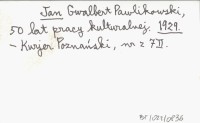 Jan Gwalbert Pawlikowski,
50 lat pracy kulturalnej. 1929.
– Kurjer Poznański, nr z 7 II.